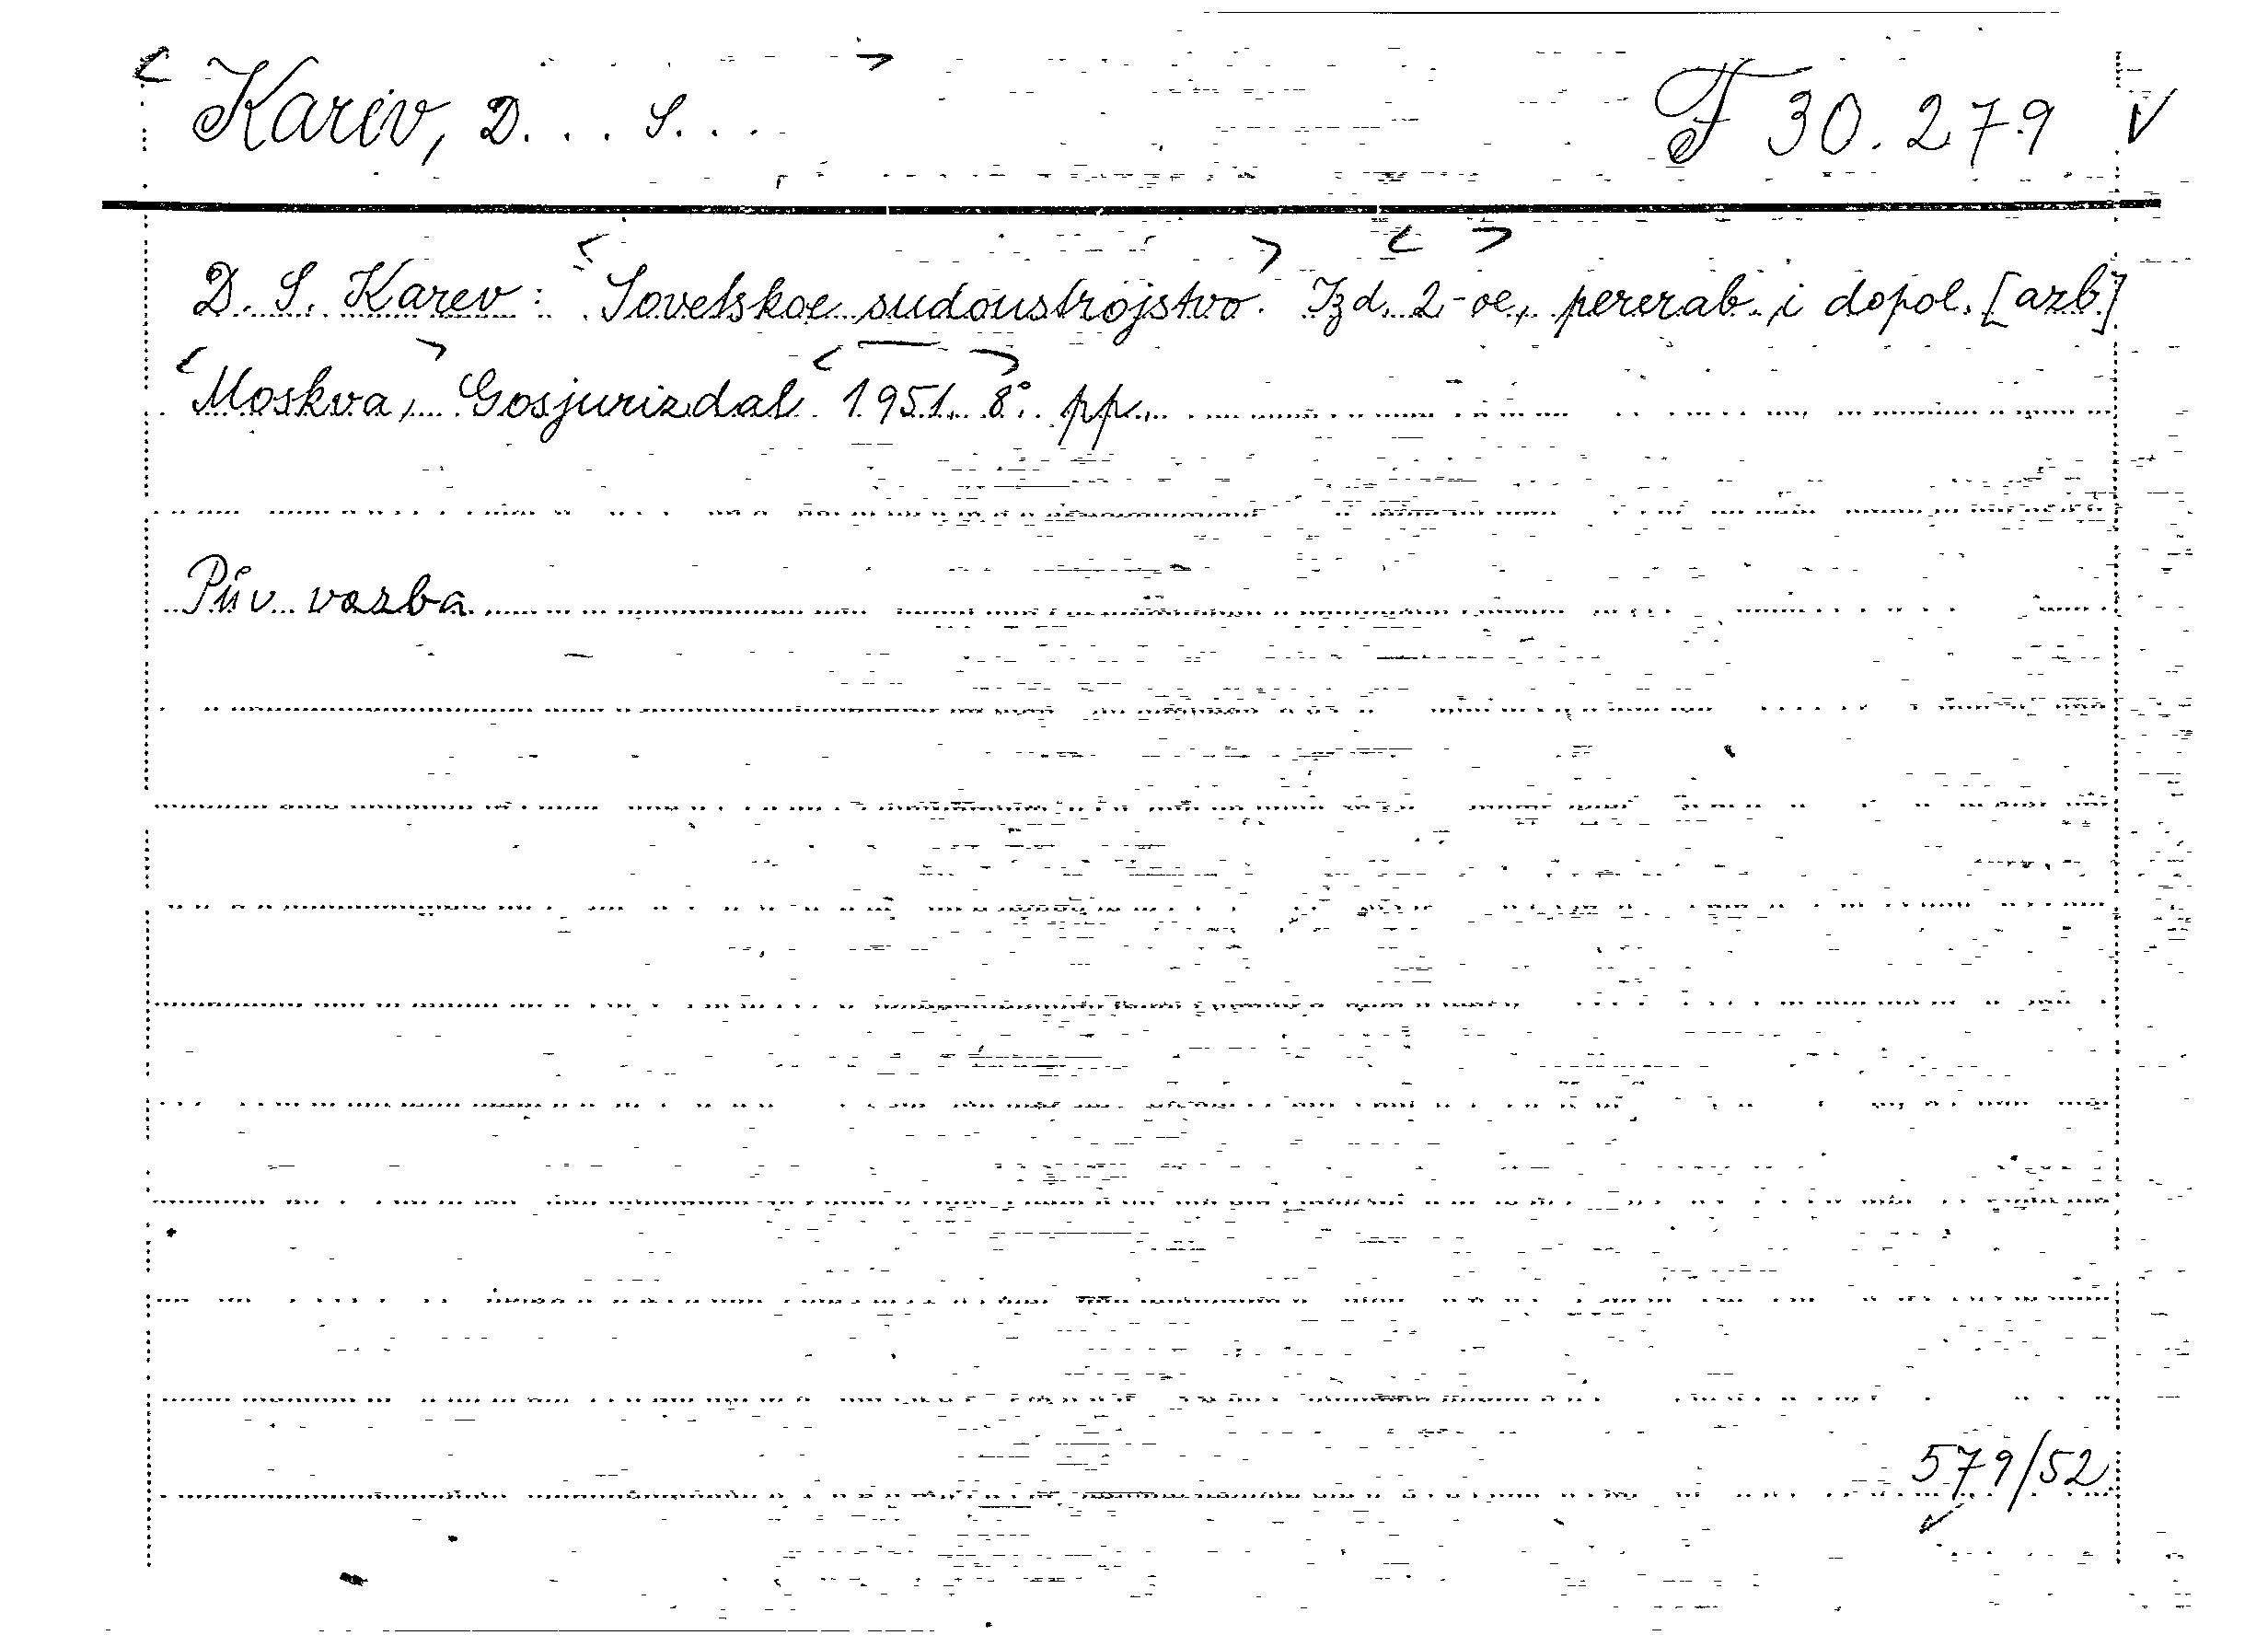 Karev, D... S... F 30.279 V
D. S. Karev: Sovetskoe sudoustrojstvo. Izd. 2-oe, pererab. i dopol. [azb]
Moskva, Gosjurizdat 1951. 8°. pp.
Pův. vazba
579/52